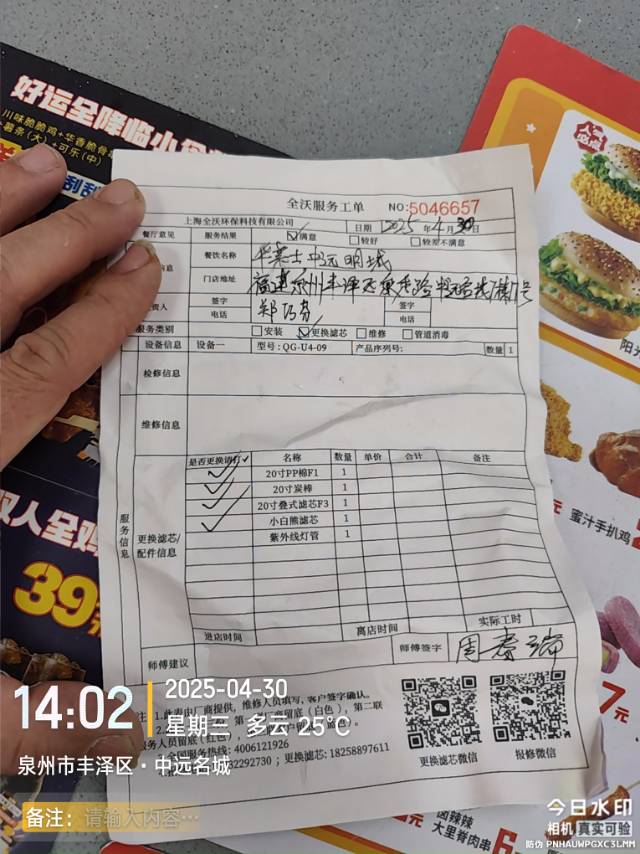 好运全降临小
川味脆脆鸡+华香脆骨
薯条(大)+可乐(中)
刮刮
全沃服务工单 NO:5046657
上海全沃环保科技有限公司 日期 2025年4月30日
餐厅意见 服务结果 ☑满意 □较好 □较差不满意
信息 餐饮名称 华莱士中远名城
门店地址 福建泉州丰泽区
签字 郑巧芬 签字
电话 电话
服务类别 □安装 ☑更换滤芯 □维修 □管道消毒
设备信息 设备一 型号:QG-U4-09 产品序列号: 数量 1
检修信息
维修信息
是否更换请打✓ 名称 数量 单价 合计 备注
✓ 20寸PP棉F1 1
✓ 20寸炭棒 1
✓ 20寸叠式滤芯F3 1
✓ 小白熊滤芯 1
紫外线灯管 1
服务信息
更换滤芯/配件信息
进店时间 离店时间 实际工时
师傅建议 师傅签字 周春瑞
1.此表由厂商提供,维修人员填写,客户签字确认。
全国服务热线:4006121926
2292730;更换滤芯:18258897611
更换滤芯微信 报修微信
双人全鸡
39
阳光
蜜汁手扒鸡
7元
卤辣辣
大里脊肉串
6
14:02
2025-04-30
星期三 多云 25℃
泉州市丰泽区·中远名城
备注: 请输入内容…
今日水印
相机 真实可验
防伪 PNHAUWPGXC3LMM